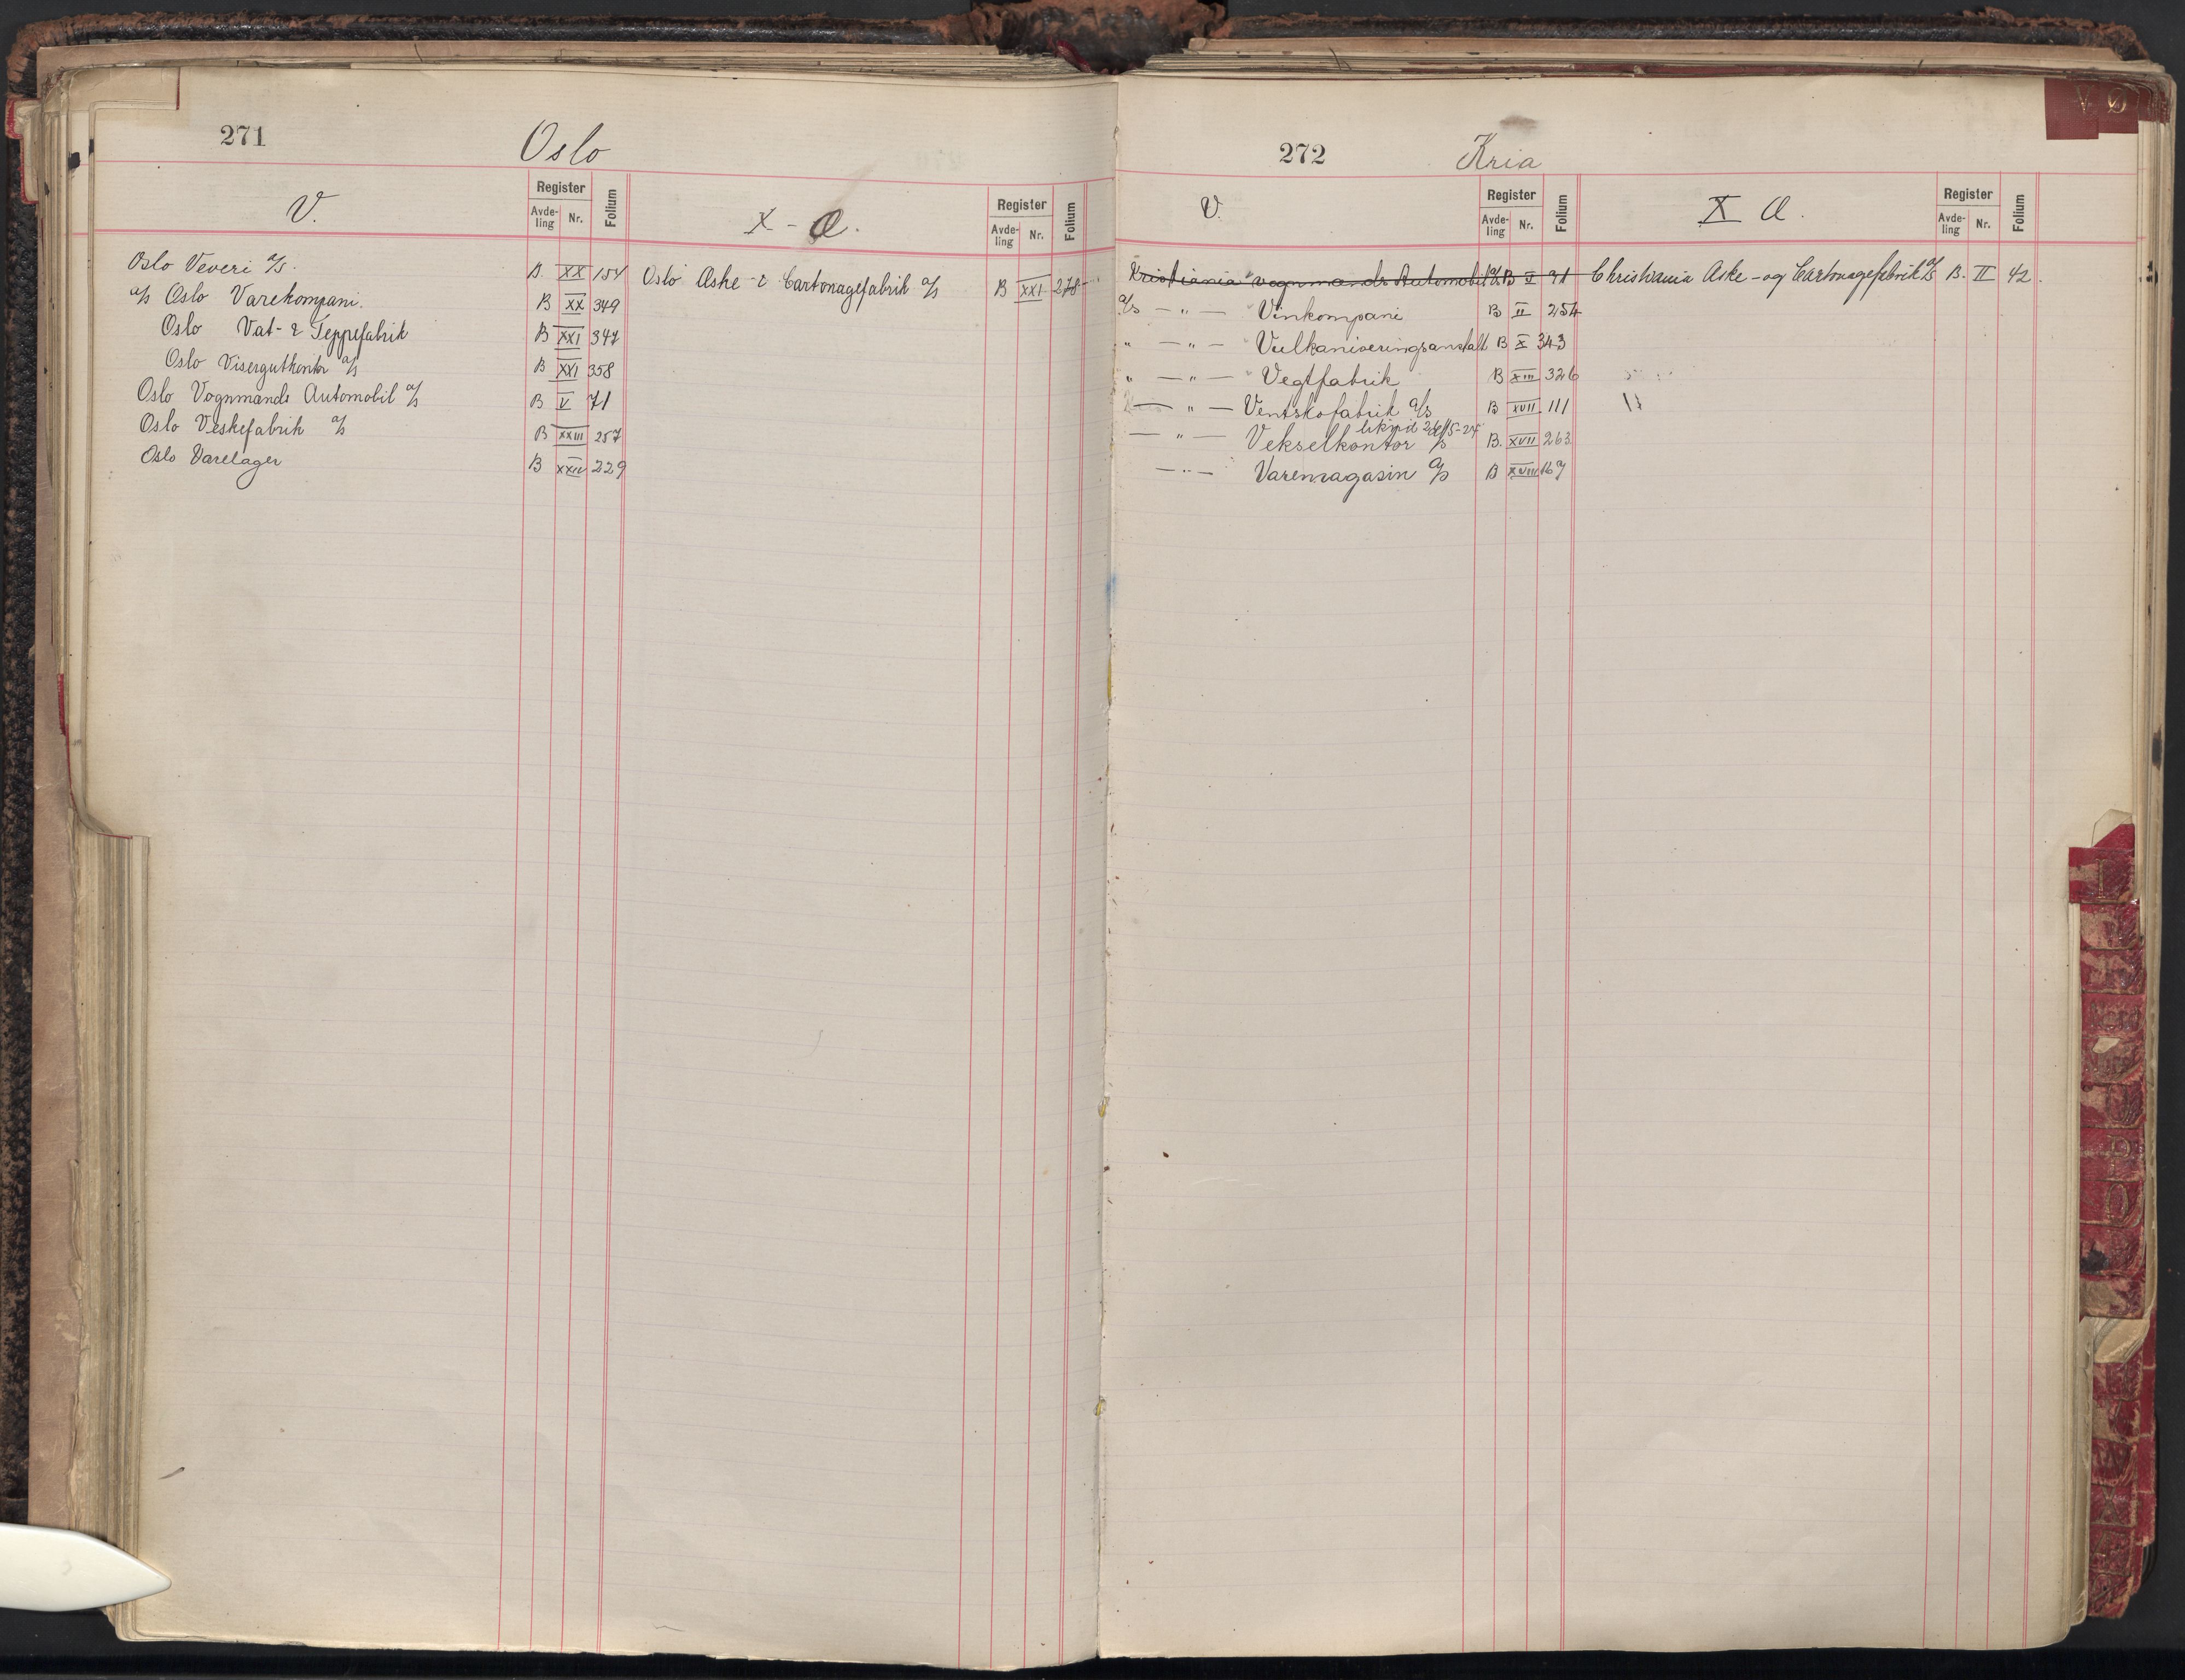 271
Oslo
V.
Register
Avde-
ling
Nr.
Folium
X - Ø.
Register
Avde-
ling
Nr.
Folium
Oslo Veveri a/s. B. XX 154
a/s Oslo Varekompani. B XX 349
Oslo Vat- & Teppefabrik B XXI 347
Oslo Visergutkontor a/s B XXI 358
Oslo Vognmænds Automobil a/s B V 71
Oslo Veskefabrik a/s B XXIII 257
Oslo Varelager B XXIV 229
Oslo Æske- & Cartonagefabrik a/s B XXI 278
272
Kria
V.
Register
Avde-
ling
Nr.
Folium
X Ø.
Register
Avde-
ling
Nr.
Folium
Kristiania vognmænds Automobil a/s B V 71
a/s — " — Vinkompani B II 254
" — " — Vulkaniseringsanstalt B X 343
" — " — Vegtfabrik B XIII 326
— " — Ventskofabrik a/s B XVII 111
likvid 26/5-24
— " — Vekselkontor a/s B. XVII 263
— " — Varemagasin a/s B XVIII 167
Christiania Æske- og Cartonagefabrik a/s B. II 42.
V Ø